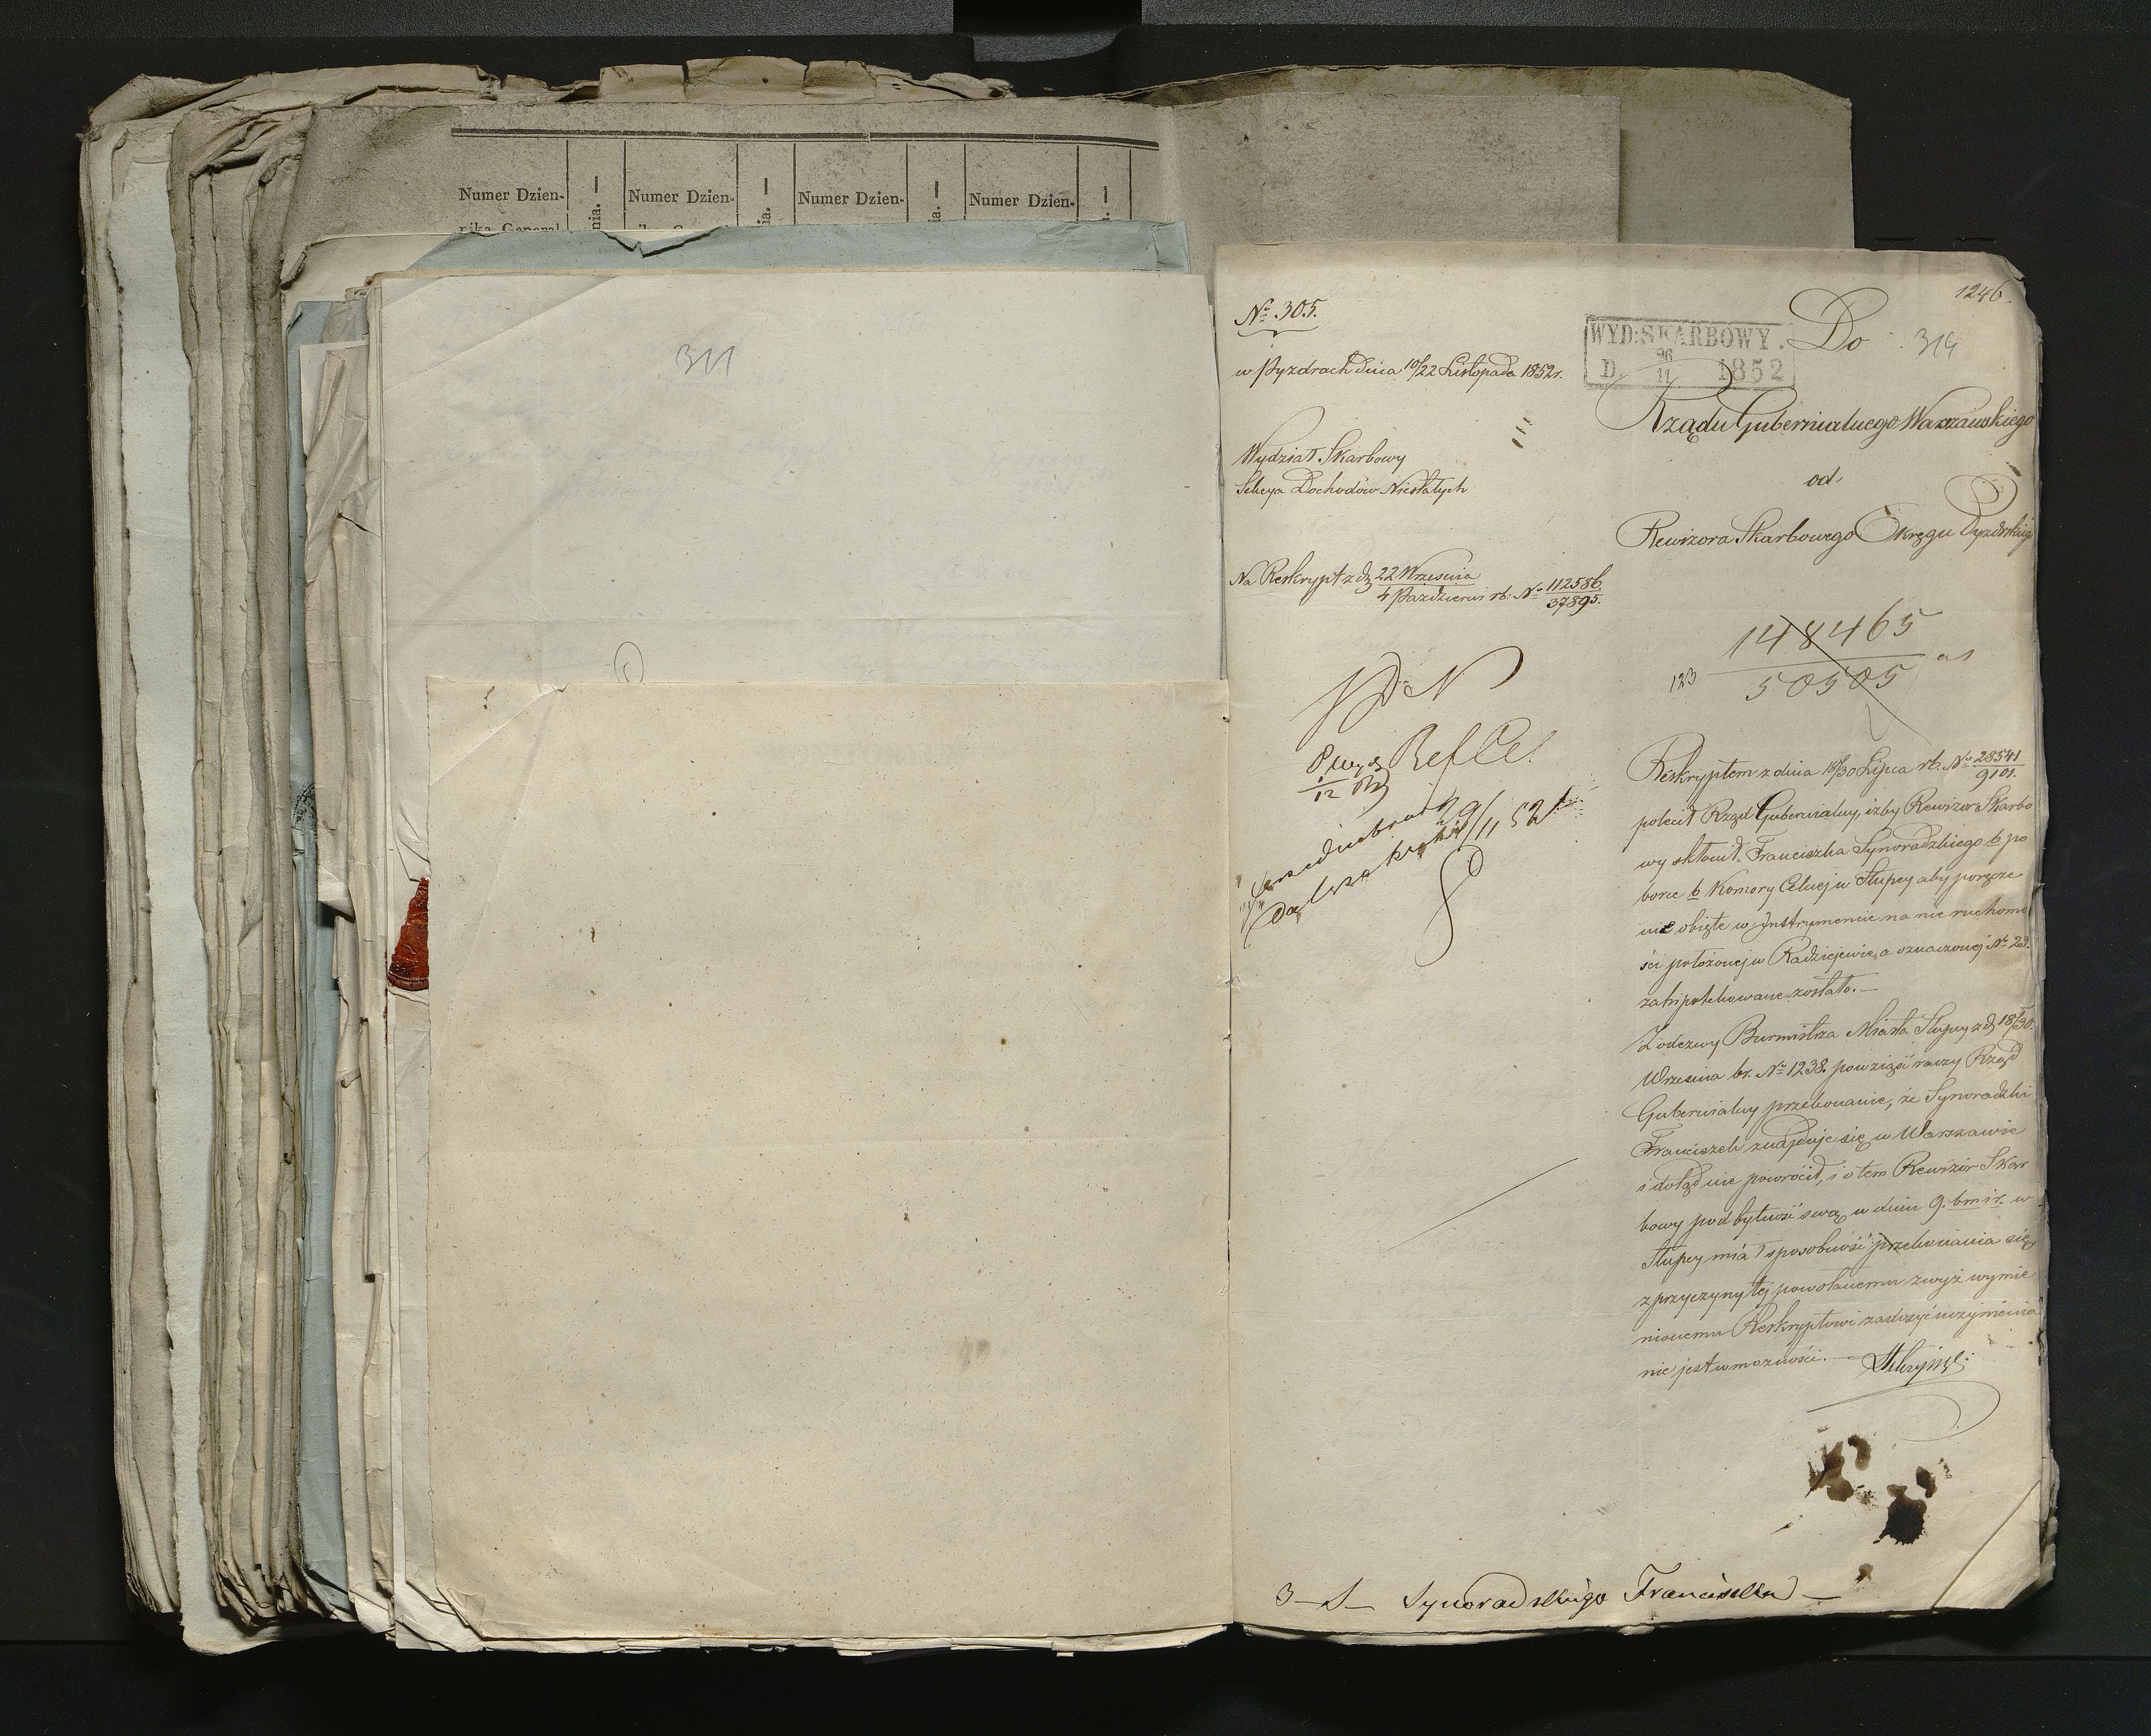 Numer Dzien-
nia.
Numer Dzien-
ia.
Numer Dzien-
ia.
Numer Dzien-
nika General
311
1246.
№ 305.
w Pyzdrach dnia 10/22 Listopada 1852 r.
WYD: SKARBOWY.
D. 26/11 1852
Do
314
Rządu Gubernialnego Warszawskiego
Wydział Skarbowy
Sekcya Dochodów Niestałych
od
Rewizora Skarbowego Okręgu Pyzdrskiego
Na Reskrypt z d. 22 Września
4 Październi rb. № 112586/37895.
148465
123 50505
Ref Cel.
29/11 52
Reskryptem z dnia 18/30 Lipca rb. № 28541/9101.
polecił Rząd Gubernialny, iżby Rewizor Skarbo
wy skłonił Franciszka Synoradzkiego b po
borcę b Komory Celnej w Słupcy aby poręcze
nie objęte w Instrumencie na nieruchomo
ści położonej w Radziejewie, a oznaczonej № 23.
zahipotekowane zostało. —
Z odezwy Burmistrza Miasta Słupcy z d. 18/30.
Września br. № 1238. powziąść raczy Rząd
Gubernialny przekonanie, że Synoradzki
Franciszek znajduje się w Warszawie
i dotąd nie powrócił, i o tem Rewizor Skar
bowy pod bytność swą w dniu 9. bm ir. w
Słupcy miał sposobność przekonania się
z przyczyny tej powołanemu zwyż wymie
nionemu Reskryptowi zadosyć uczynienia
nie jest w możności. —
3 — S — Synoradzkiego Franciszka —